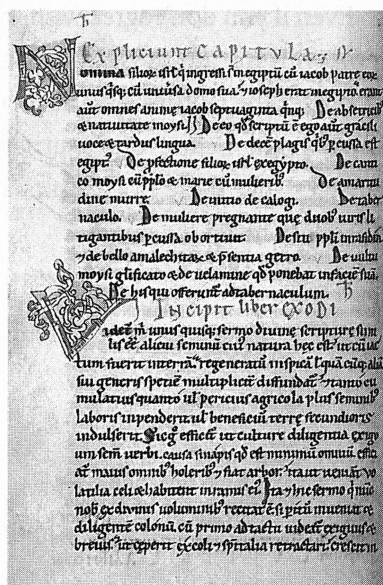 EXpliciunt CAPITULA
Nomina filiorum israel qui ingressi sunt in egiptum cum iacob patre eor
unusquisque cum uxi sua domo sua &
aut omnes anime iacob septuaginta quinque De obstetricib
& nativitate moysi De eo qd scriptū ē ego aut gracili
voce & tardus lingua. De decē plagis qb; pcussa est
egipt' De pfectione filior isrl ex egypto. De canti
co moysi cū pplo & marie cū mulierib; De amaritu
dine murre. De vitio de calogi. De taber
naculo. De muliere pregnante que duob; viris li
tigantibus pcussa obortiuit.
& de bello amalechitar & psentia getro. De uultu
moysi glificato & de uelamine qd ponebat in faciē suā.
De his qui offerunt ad tabernaculum.
INCIPIT LIBER EXODI
Videt m unus quisq; sermo divine scripture simi
lis eē alicui seminū cui natura hec est ut cū iac
tum fuerit in terrā regeneratū in spicā
siu generis spetiē multiplicet diffundat & tanto cu
mulatius quanto ul pericius agricola plus seminib;
laboris inpenderit ul beneficiū terre fecundioris
indulserit Sicq; efficit ut culture diligentia exigu
um semī verbi causa sinapis qd est minimū omniū effici
at maius omnib; holerib; & fiat arbor ita ut veniant vo
latilia celi & habitent in ramis ei' Ita & hic sermo q nūc
nob ex divinis voluminib; recitat ē si pitū inueniat &
diligentē colonū cū primo ad tactu videat exiguus &
breuis ut ceperit excoli & spitalia retractari crescit in